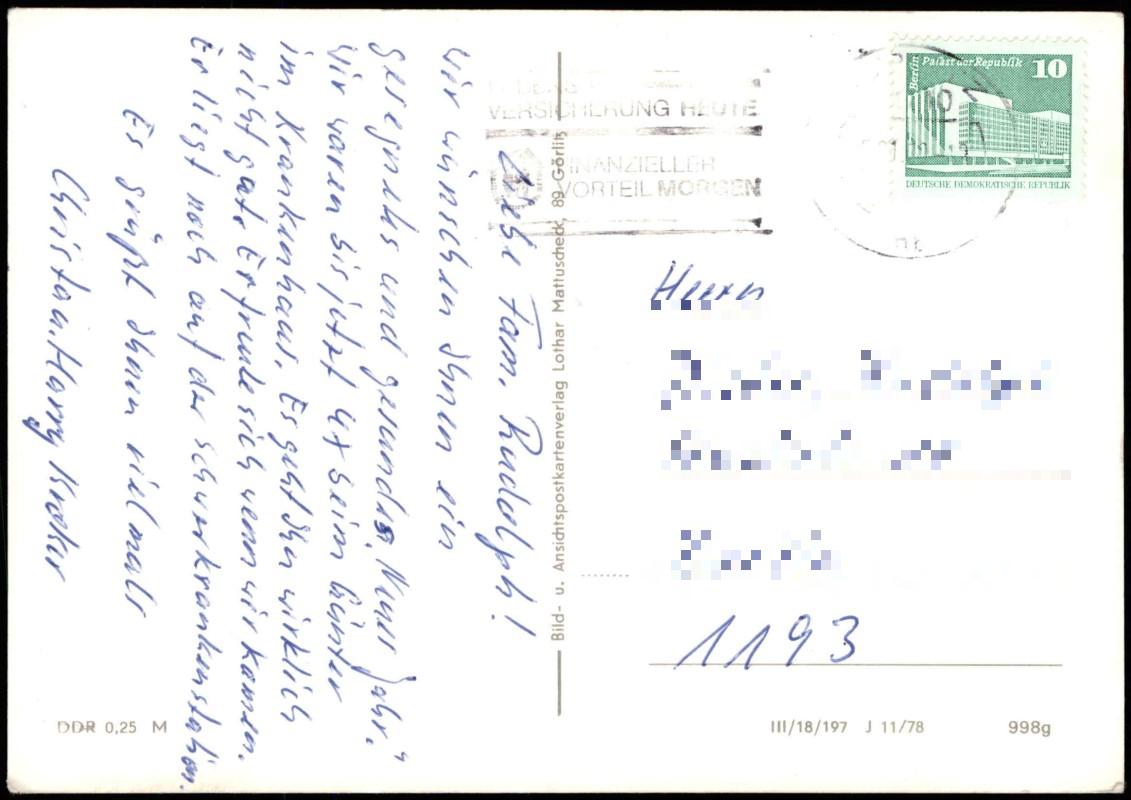 Liebe Fam. Rudolph!
Wir wünschen Ihnen ein
gesegnetes und gesundes Neues Jahr."
Wir waren bis jetzt 4x beim Günter
im Krankenhaus. Es geht ihm wirklich
nicht gut. Er freute sich wenn wir kamen.
Er liegt noch auf der Schwerkrankenstation.
Es grüßt Ihnen vielmals
Christa u. Harry
Bild- u. Ansichtspostkartenverlag Lothar Mattuscheck, 89 Görlitz
VERSICHERUNG HEUTE
FINANZIELLER
VORTEIL MORGEN
Berlin
Palast der Republik 10
DEUTSCHE DEMOKRATISCHE REPUBLIK
Herrn
1193
DDR 0,25 M
III/18/197 J 11/78 998g